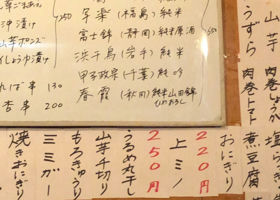 山芋ポンズ
しょうゆ漬け
130
杏串 200
350
写楽（福島）純米
富士錦（静岡）純米原酒
650
浜千鳥（岩手）純米
甲子政宗（千葉）純吟
春霞（秋田）純米山田錦
ひやおろし
うずら
肉巻トマト
肉巻しょうが
煮豆腐
塩
おにぎり
上ミノ
220円
220円
250円
うるめ丸干し
山芋千切り
もろきゅうり
ミミガー
焼きおにぎり